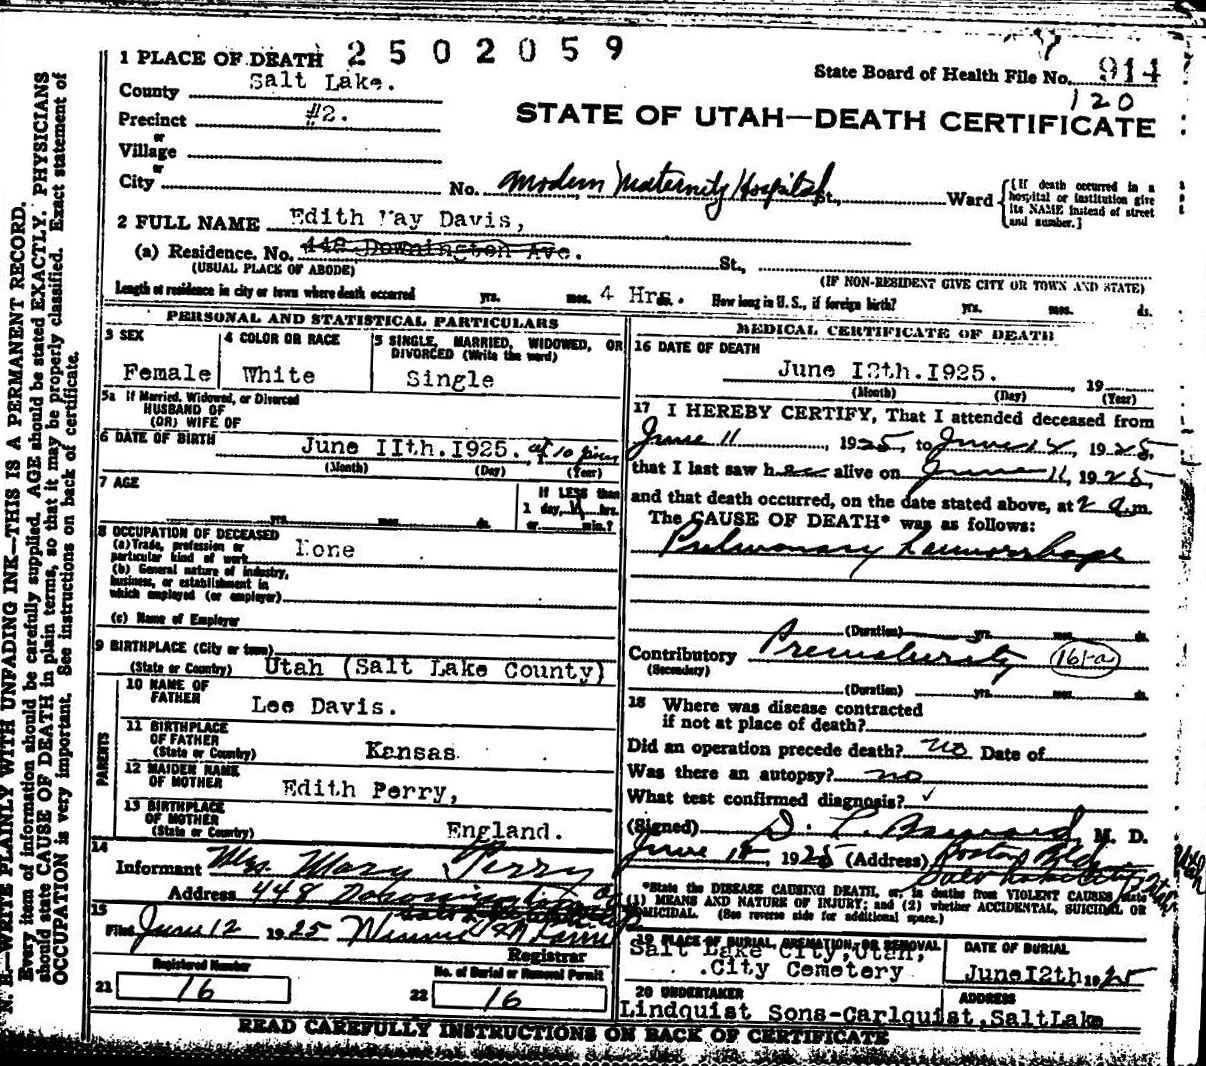 1 PLACE OF DEATH 2 5 0 2 0 5 9
State Board of Health File No. 914
120
County Salt Lake.
Precinct #2.
or
Village
or
City
STATE OF UTAH—DEATH CERTIFICATE
No. Modern Maternity Hospital St., Ward
{If death occurred in a hospital or institution give its NAME instead of street and number.}
2 FULL NAME Edith May Davis,
(a) Residence. No. 448 Downington Ave. St.,
(USUAL PLACE OF ABODE) (IF NON-RESIDENT GIVE CITY OR TOWN AND STATE)
Length of residence in city or town where death occurred yrs. mos. 4 Hrs. ds. How long in U. S., if foreign birth? yrs. mos. ds.
PERSONAL AND STATISTICAL PARTICULARS
3 SEX
Female
4 COLOR OR RACE
White
5 SINGLE, MARRIED, WIDOWED, OR DIVORCED (Write the word)
Single
5a If Married, Widowed, or Divorced
HUSBAND OF
(OR) WIFE OF
6 DATE OF BIRTH June IIth.I925. at 10 pm
(Month) (Day) (Year)
7 AGE
yrs. mos. ds.
If LESS than
1 day, 4 hrs.
or min.?
8 OCCUPATION OF DECEASED
(a) Trade, profession or
particular kind of work None
(b) General nature of industry,
business, or establishment in
which employed (or employer)
(c) Name of Employer
9 BIRTHPLACE (City or town)
(State or Country) Utah (Salt Lake County)
PARENTS
10 NAME OF
FATHER Lee Davis.
11 BIRTHPLACE
OF FATHER
(State or Country) Kansas
12 MAIDEN NAME
OF MOTHER Edith Perry,
13 BIRTHPLACE
OF MOTHER
(State or Country) England.
14
Informant Mrs. Mary Perry
Address 448
15
Filed June 12 1925
Registrar
Registered Number
21 16
No. of Burial or Removal Permit
22 16
MEDICAL CERTIFICATE OF DEATH
16 DATE OF DEATH
June I2th.I925. , 19
(Month) (Day) (Year)
17 I HEREBY CERTIFY, That I attended deceased from
June 11, 1925, to June 12, 1925,
that I last saw her alive on June 11, 1925,
and that death occurred, on the date stated above, at 2 a.m.
The CAUSE OF DEATH* was as follows:
Pulmonary haemorrhage
(Duration) yrs. mos. ds.
Contributory Prematurity 161-a
(Secondary)
(Duration) yrs. mos. ds.
18 Where was disease contracted
if not at place of death?
Did an operation precede death? no Date of
Was there an autopsy? no
What test confirmed diagnosis? ✓
(Signed) M. D.
June 12, 1925 (Address) Boston Bldg
Salt Lake City Utah
*State the DISEASE CAUSING DEATH, or, in deaths from VIOLENT CAUSES, state
(1) MEANS AND NATURE OF INJURY; and (2) whether ACCIDENTAL, SUICIDAL OR
HOMICIDAL. (See reverse side for additional space.)
19 PLACE OF BURIAL, CREMATION, OR REMOVAL
Salt Lake City, Utah,
City Cemetery
DATE OF BURIAL
June I2th, 1925
20 UNDERTAKER
ADDRESS
Lindquist Sons-Carlquist, SaltLake
READ CAREFULLY INSTRUCTIONS ON BACK OF CERTIFICATE
N. B.—WRITE PLAINLY WITH UNFADING INK—THIS IS A PERMANENT RECORD.
Every item of information should be carefully supplied. AGE should be stated EXACTLY. PHYSICIANS
should state CAUSE OF DEATH in plain terms, so that it may be properly classified. Exact statement of
OCCUPATION is very important. See instructions on back of certificate.